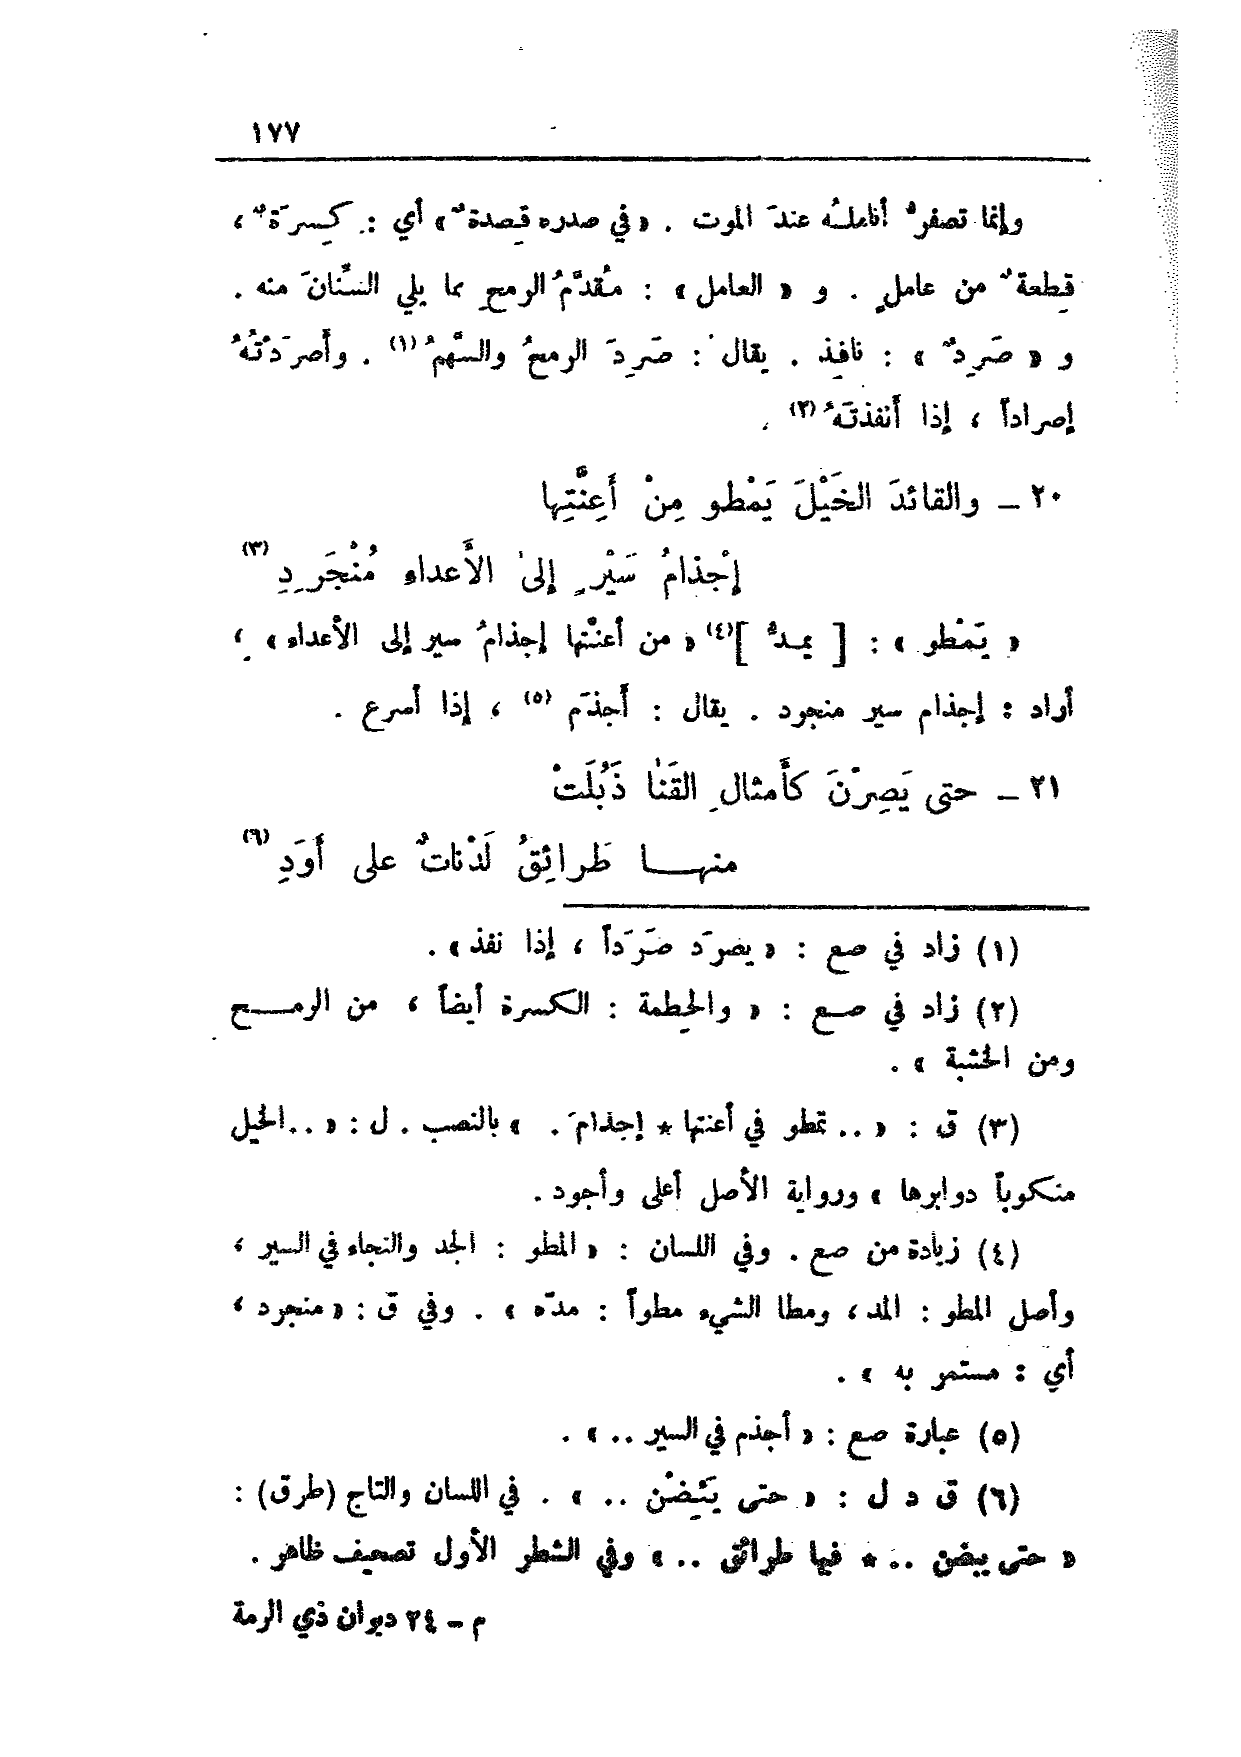 ١٧٧
وإنما تصفرُ أناملُه عندَ الموت . « في صدره قِصدةٌ » أي : كِسرَةٌ ،
قِطعةٌ من عاملٍ . و « العامل » : مُقدَّمُ الرمحِ مما يلي السِّنانَ منه .
و « صَرِدٌ » : نافِذ . يقال : صَرِدَ الرمحُ والسَّهمُ (١) . وأَصرَدْتُهُ
إصراداً ، إذا أَنفذتَهُ (٢) .
٢٠ ـ والقائدَ الخَيْلَ يَمْطو مِنْ أَعِنَّتِها
إجْذامُ سَيْرٍ إلى الأَعداءِ مُنْجَرِدِ (٣)
« يَمْطو » : [ يمدُّ ] (٤) « من أعنّتها إجذامُ سير إلى الأعداء » ،
أراد : إجذام سير منجرد . يقال : أَجذَم (٥) ، إذا أسرع .
٢١ ـ حتى يَصِرْنَ كأَمثالِ القَنا ذَبُلَتْ
منهـا طَرائِقُ لَدْناتٌ على أَوَدِ (٦)
(١) زاد في صع : « يصرَد صَرَداً ، إذا نفذ » .
(٢) زاد في صع : « والحِطمة : الكسرة أيضاً ، من الرمح
ومن الخشبة » .
(٣) ق : « .. تمطو في أعنتها * إجذامَ . » بالنصب . ل : « .. الخيل
منكوباً دوابرها » ورواية الأصل أعلى وأجود .
(٤) زيادة من صع . وفي اللسان : « المطو : الجد والنجاء في السير ،
وأصل المطو : المد ، ومطا الشيء مطواً : مدّه » . وفي ق : « منجرد ،
أي : مستمر به » .
(٥) عبارة صع : « أجذم في السير .. » .
(٦) ق د ل : « حتى يَئِضْن .. » . في اللسان والتاج (طرق) :
« حتى يبضن .. * فيها طرائق .. » وفي الشطر الأول تصحيف ظاهر .
م ـ ٢٤ ديوان ذي الرمة